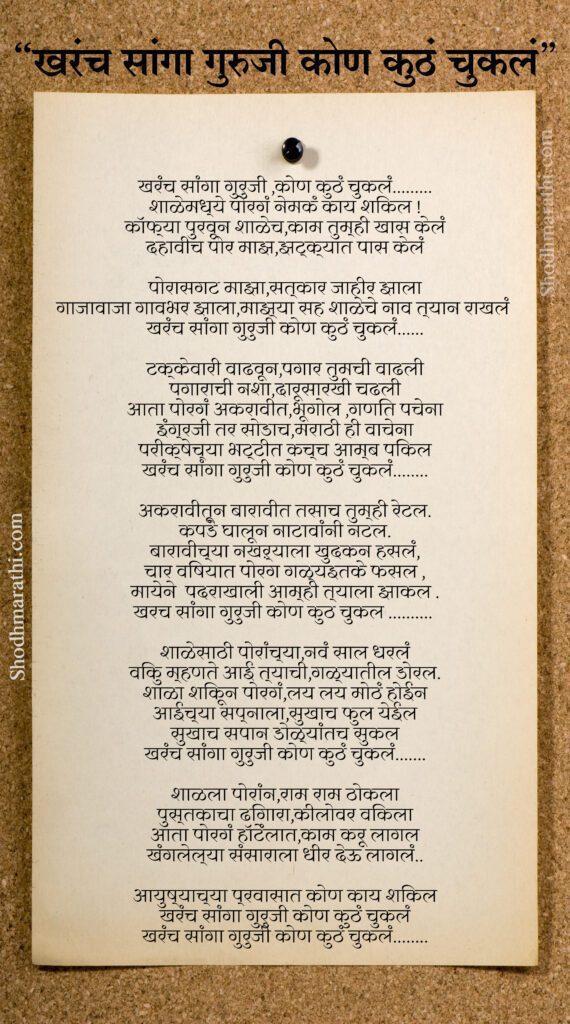 “खरंच सांगा गुरुजी कोण कुठं चुकलं”
खरंच सांगा गुरुजी ,कोण कुठं चुकलं.........
शाळेमध्ये पोरगं नेमकं काय शकिल !
कॉफ्या पुरवून शाळेच,काम तुम्ही खास केलं
दहावीच पोर माझ,झट्क्यात पास केलं
पोरासगट माझा,सत्कार जाहीर झाला
गाजावाजा गावभर झाला,माझ्या सह शाळेचे नाव त्यान राखलं
खरंच सांगा गुरुजी कोण कुठं चुकलं......
टक्केवारी वाढवून,पगार तुमची वाढली
पगाराची नशा,दारूसारखी चढली
आता पोरगं अकरावीत,भूगोल ,गणति पचेना
इंग्रजी तर सोडाच,मराठी ही वाचेना
परीक्षेच्या भट्टीत कच्च आम्ब पकिल
खरंच सांगा गुरुजी कोण कुठं चुकलं........
अकरावीतून बारावीत तसाच तुम्ही रेटल.
कपडे घालून नाटावांनी नटल.
बारावीच्या नखऱ्याला खुदकन हसलं,
चार वषियात पोरग गळ्यइतके फसल ,
मायेने पदराखाली आम्ही त्याला झाकल .
खरच सांगा गुरुजी कोण कुठ चुकल ..........
शाळेसाठी पोरांच्या,नवं साल धरलं
वकिु म्हणते आई त्याची,गळ्यातील डोरल.
शाळा शकिून पोरगं,लय लय मोठं होईन
आईच्या सप्नाला,सुखाच फुल येईल
सुखाच सपान डोळ्यांतच सुकल
खरंच सांगा गुरुजी कोण कुठं चुकलं.......
शाळला पोरांन,राम राम ठोकला
पुस्तकाचा ढगिारा,कीलोवर वकिला
आता पोरगं हॉटेलात,काम करू लागल
खंगलेल्या संसाराला धीर देऊ लागलं..
आयुष्याच्या प्रवासात कोण काय शकिल
खरंच सांगा गुरुजी कोण कुठं चुकलं
खरंच सांगा गुरुजी कोण कुठं चुकलं........
Shodhmarathi.com
Shodhmarathi.com